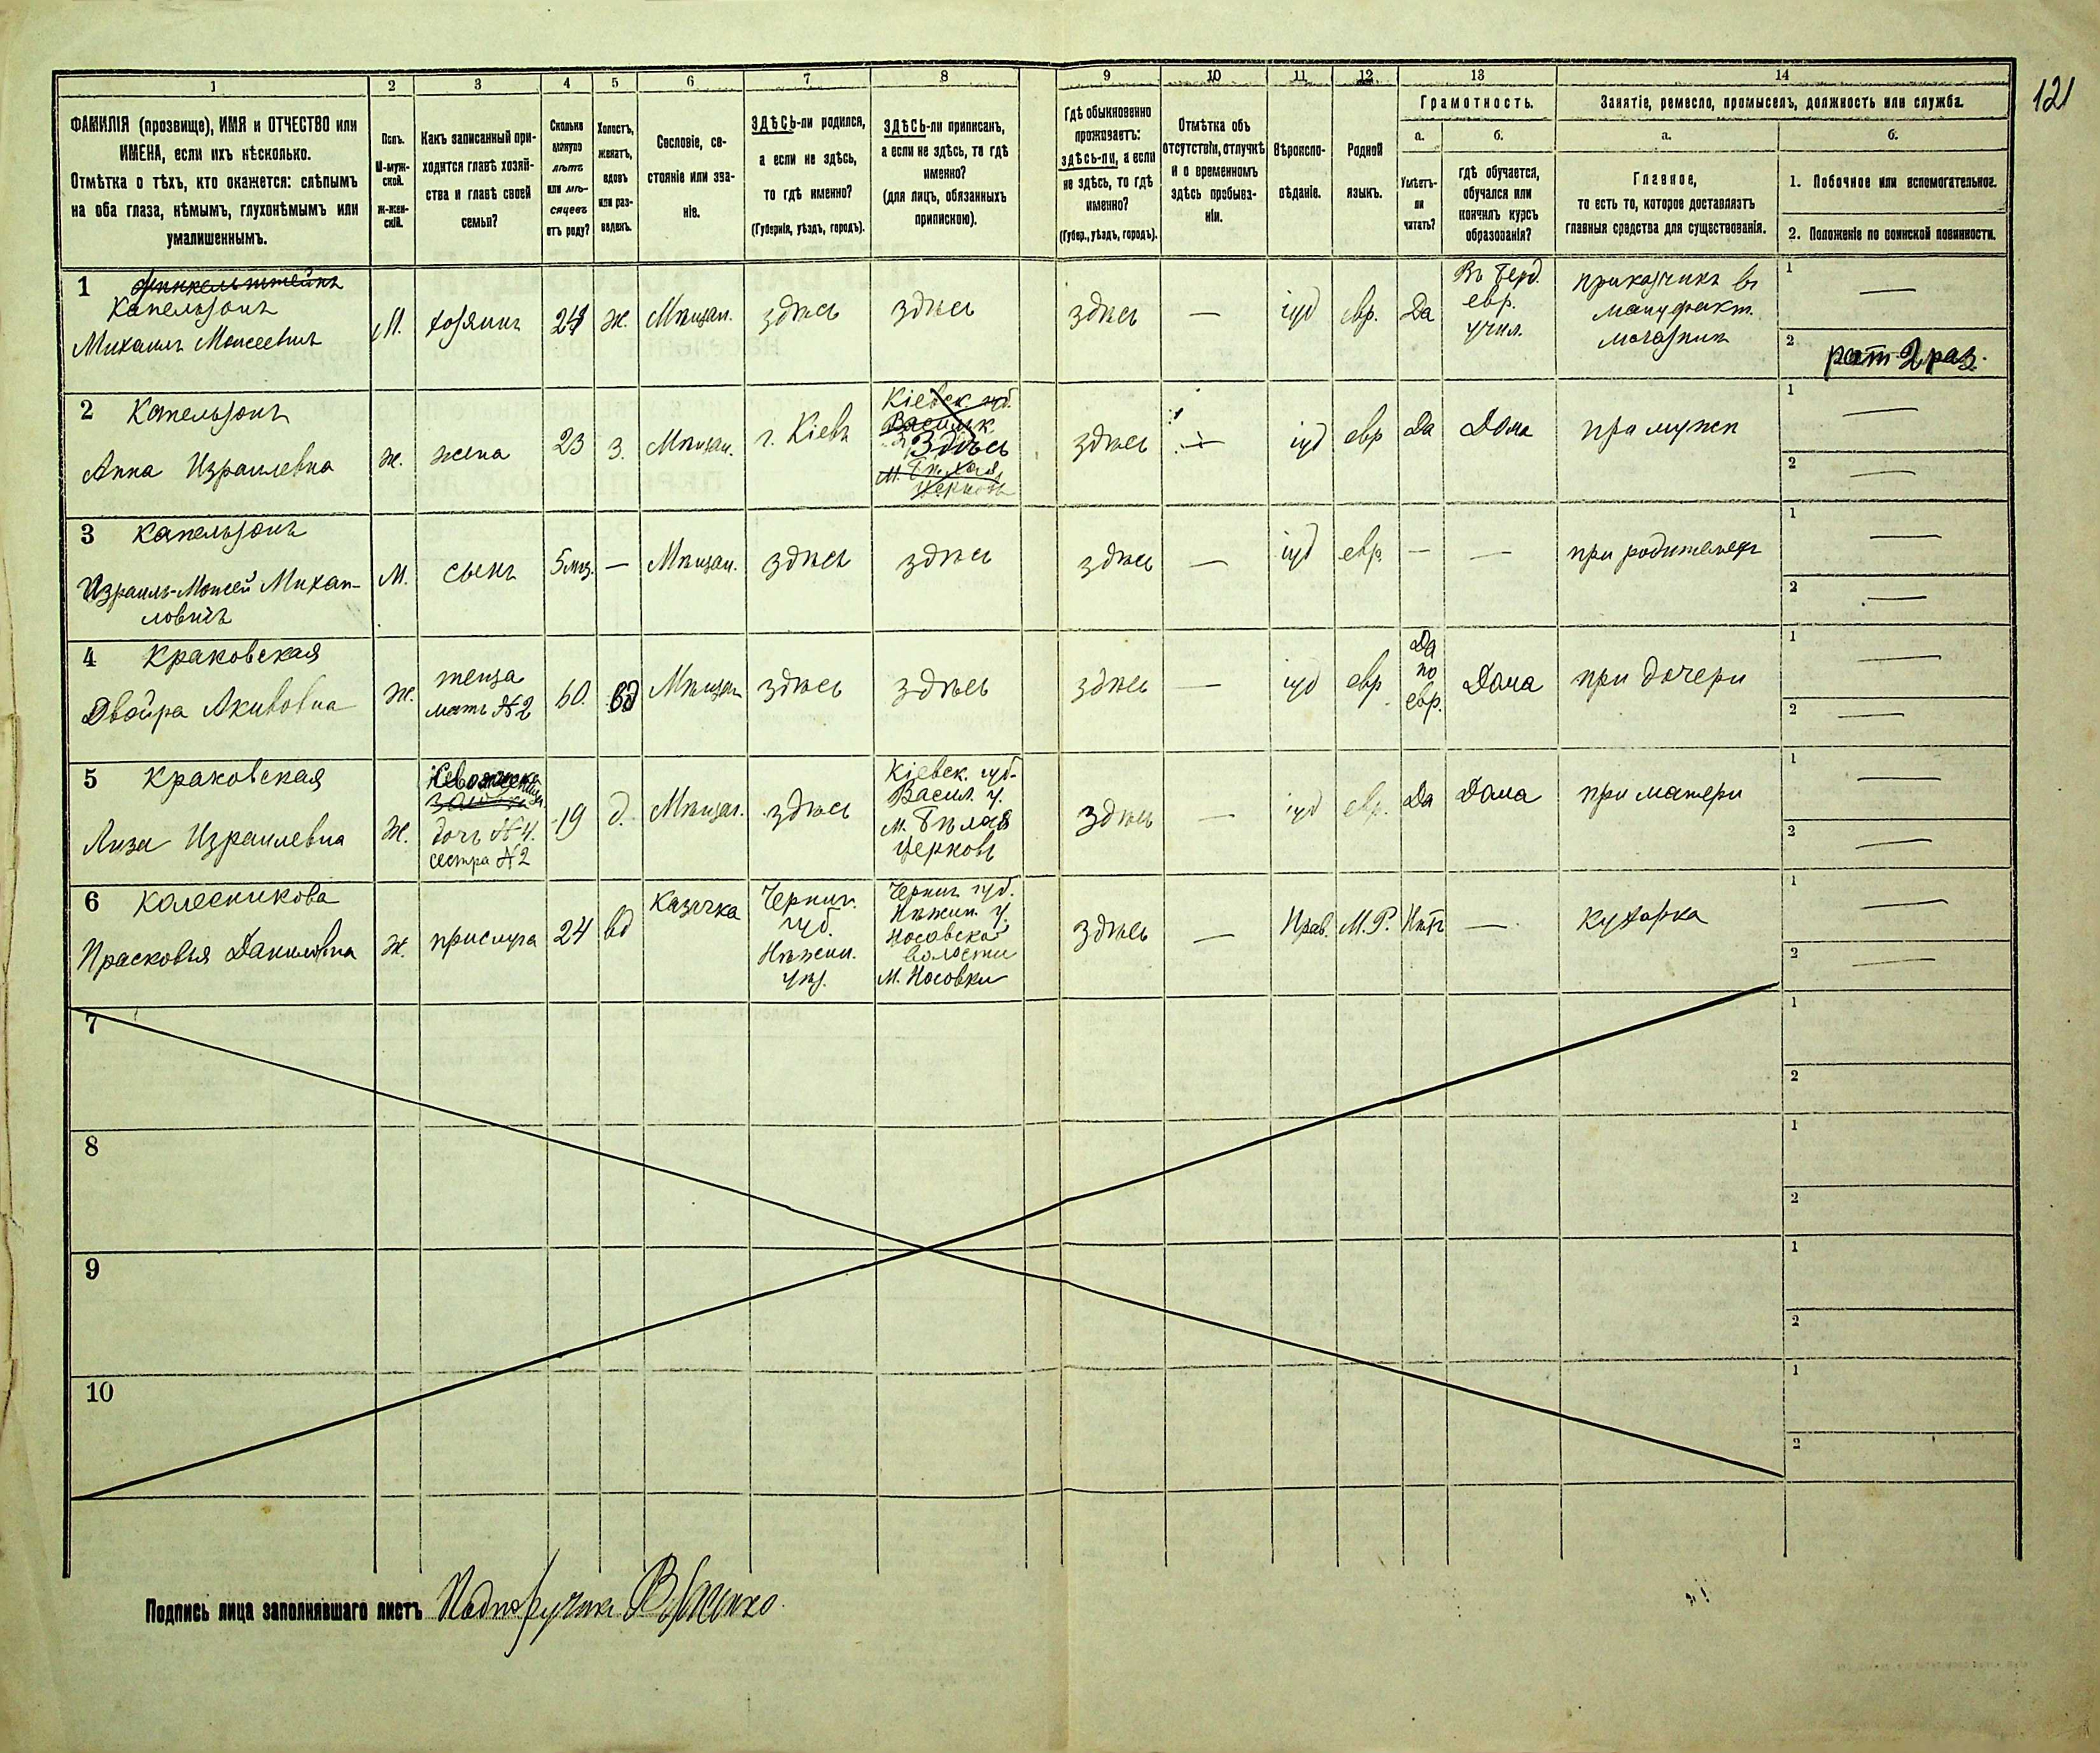 121
1 2 3 4 5 6 7 8 9 10 11 12 13 14
ФАМИЛІЯ (прозвище), ИМЯ и ОТЧЕСТВО или
ИМЕНА, если ихъ нѣсколько.
Отмѣтка о тѣхъ, кто окажется: слѣпымъ
на оба глаза, нѣмымъ, глухонѣмымъ или
умалишеннымъ.
Полъ.
М-муж-
ской.
Ж-жен-
скій.
Какъ записанный при-
ходится главѣ хозяй-
ства и главѣ своей
семьи?
Сколько
минуло
лѣтъ
или мѣ-
сяцевъ
отъ роду?
Холостъ,
женатъ,
вдовъ
или раз-
веденъ.
Сословіе, со-
стояніе или зва-
ніе.
ЗДѢСЬ-ли родился,
а если не здѣсь,
то гдѣ именно?
(Губернія, уѣздъ, городъ).
ЗДѢСЬ-ли приписанъ,
а если не здѣсь, то гдѣ
именно?
(для лицъ, обязанныхъ
припискою).
Гдѣ обыкновенно
проживаетъ:
здѣсь-ли, а если
не здѣсь, то гдѣ
именно?
(Губер., уѣздъ, городъ).
Отмѣтка объ
отсутствіи, отлучкѣ
и о временномъ
здѣсь пребыва-
ніи.
Вѣроиспо-
вѣданіе.
Родной
языкъ.
Грамотность.
а.
Умѣетъ-
ли
читать?
б.
гдѣ обучается,
обучался или
кончилъ курсъ
образованія?
Занятіе, ремесло, промыселъ, должность или служба.
а.
Главное,
то есть то, которое доставляетъ
главныя средства для существованія.
б.
1. Побочное или вспомогательное.
2. Положеніе по воинской повинности.
1 Финкельштейнъ
Капельзонъ
Михаилъ Моисеевичъ
М.
хозяинъ
ж.
Мѣщан.
здѣсь
здѣсь
здѣсь
—
іуд
евр.
Да
Въ Берд.
евр.
учил.
приказчикъ въ
мануфакт.
магазинѣ
1 —
2 рат. 2 раз.
2 Капельзонъ
Анна Израилевна
ж.
жена
23
з.
Мѣщан.
г. Кіевъ
Кіевск. губ.
Васильк.
Здѣсь
м. Бѣлая
Церковь
здѣсь
—
іуд
евр
Да
Дома
при мужѣ
1 —
2 —
3 Капельзонъ
Израиль-Моисей Михаи-
ловичъ
М.
сынъ
5 мѣс.
—
Мѣщан.
здѣсь
здѣсь
здѣсь
—
іуд
евр.
—
—
при родителяхъ
1 —
2 —
4 Краковская
Двойра Акивовна
ж.
теща
мать №2
60.
вд
Мѣщан
здѣсь
здѣсь
здѣсь
—
іуд
евр
Да
по
евр.
Дома
при дочери
1 —
2 —
5 Краковская
Лиза Израилевна
ж.
дочь №4.
сестра №2
19
д.
Мѣщан.
здѣсь
Кіевск. губ.
Васил. у.
м. Бѣлая
Церковь
здѣсь
—
іуд
евр.
Да
Дома
при матери
1 —
2 —
6 Колесникова
Прасковья Даниловна
ж.
прислуга
24
вд
Казачка
Черниг.
губ.
Нѣжин.
уѣз.
Черниг. губ.
Нѣжин. у.
Носовской
волости
м. Носовки
здѣсь
—
Прав.
М.Р.
Нѣтъ
—
кухарка
1 —
2 —
7
1
2
8
1
2
9
1
2
10
1
2
Подпись лица заполнявшаго листъ Подпоручикъ